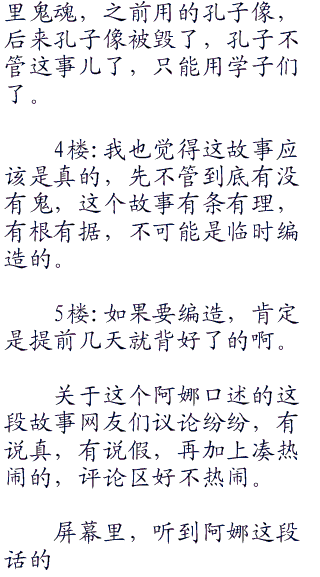 里鬼魂，之前用的孔子像，
后来孔子像被毁了，孔子不
管这事儿了，只能用学子们
了。
4楼：我也觉得这故事应
该是真的，先不管到底有没
有鬼，这个故事有条有理，
有根有据，不可能是临时编
造的。
5楼：如果要编造，肯定
是提前几天就背好了的啊。
关于这个阿娜口述的这
段故事网友们议论纷纷，有
说真，有说假，再加上凑热
闹的，评论区好不热闹。
屏幕里，听到阿娜这段
话的